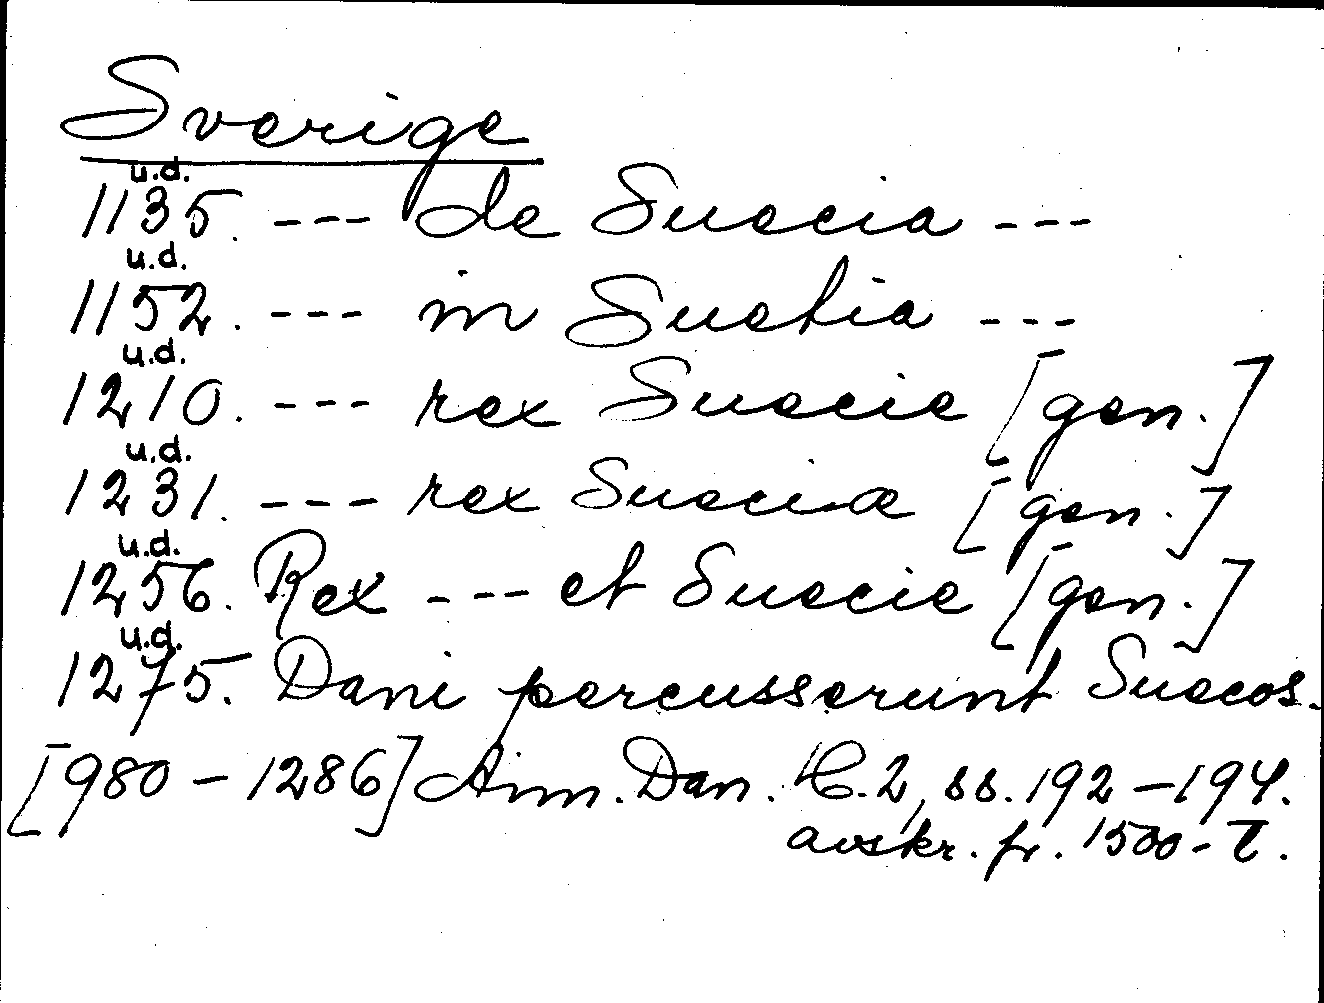 Sverige
u.d.
1135. --- de Suecia ---
u.d.
1152. --- in Suetia ---
u.d.
1210. --- rex Suecie [gen.]
u.d.
1231. --- rex Sueciæ [gen.]
u.d.
1256. Rex --- et Suecie [gen.]
u.d.
1275. Dani percusserunt Suecos.
[980-1286] Ann. Dan. 2, ss. 192-194.
avskr. fr. 1500-t.